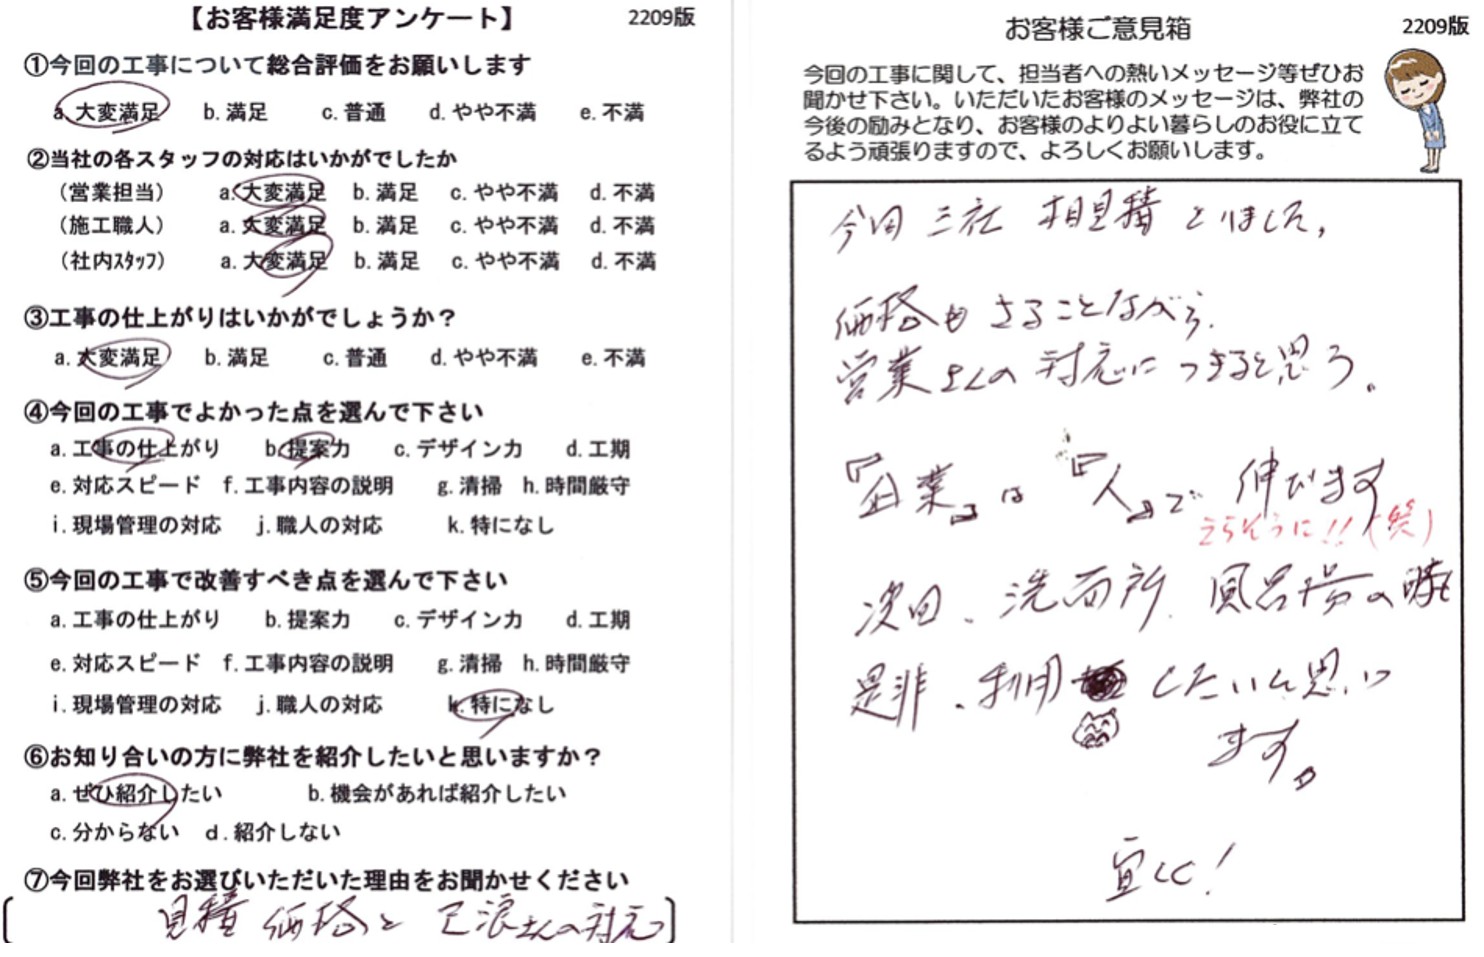 【お客様満足度アンケート】 2209版
①今回の工事について総合評価をお願いします
a.大変満足 b.満足 c.普通 d.やや不満 e.不満
②当社の各スタッフの対応はいかがでしたか
(営業担当) a.大変満足 b.満足 c.やや不満 d.不満
(施工職人) a.大変満足 b.満足 c.やや不満 d.不満
(社内ｽﾀｯﾌ) a.大変満足 b.満足 c.やや不満 d.不満
③工事の仕上がりはいかがでしょうか？
a.大変満足 b.満足 c.普通 d.やや不満 e.不満
④今回の工事でよかった点を選んで下さい
a.工事の仕上がり b.提案力 c.デザイン力 d.工期
e.対応スピード f.工事内容の説明 g.清掃 h.時間厳守
i.現場管理の対応 j.職人の対応 k.特になし
⑤今回の工事で改善すべき点を選んで下さい
a.工事の仕上がり b.提案力 c.デザイン力 d.工期
e.対応スピード f.工事内容の説明 g.清掃 h.時間厳守
i.現場管理の対応 j.職人の対応 k.特になし
⑥お知り合いの方に弊社を紹介したいと思いますか？
a.ぜひ紹介したい b.機会があれば紹介したい
c.分からない d.紹介しない
⑦今回弊社をお選びいただいた理由をお聞かせください
見積価格と 浪さんの対応
お客様ご意見箱 2209版
今回の工事に関して、担当者への熱いメッセージ等ぜひお
聞かせ下さい。いただいたお客様のメッセージは、弊社の
今後の励みとなり、お客様のよりよい暮らしのお役に立て
るよう頑張りますので、よろしくお願いします。
今回 三社 相見積 とりました。
価格もさることながら、
営業さんの対応につきると思う。
『企業』は『人』で 伸びます
えらそうに!!(笑)
次回、洗面所、風呂場の時も
是非、利用したいと思い
ます。
宜しく！